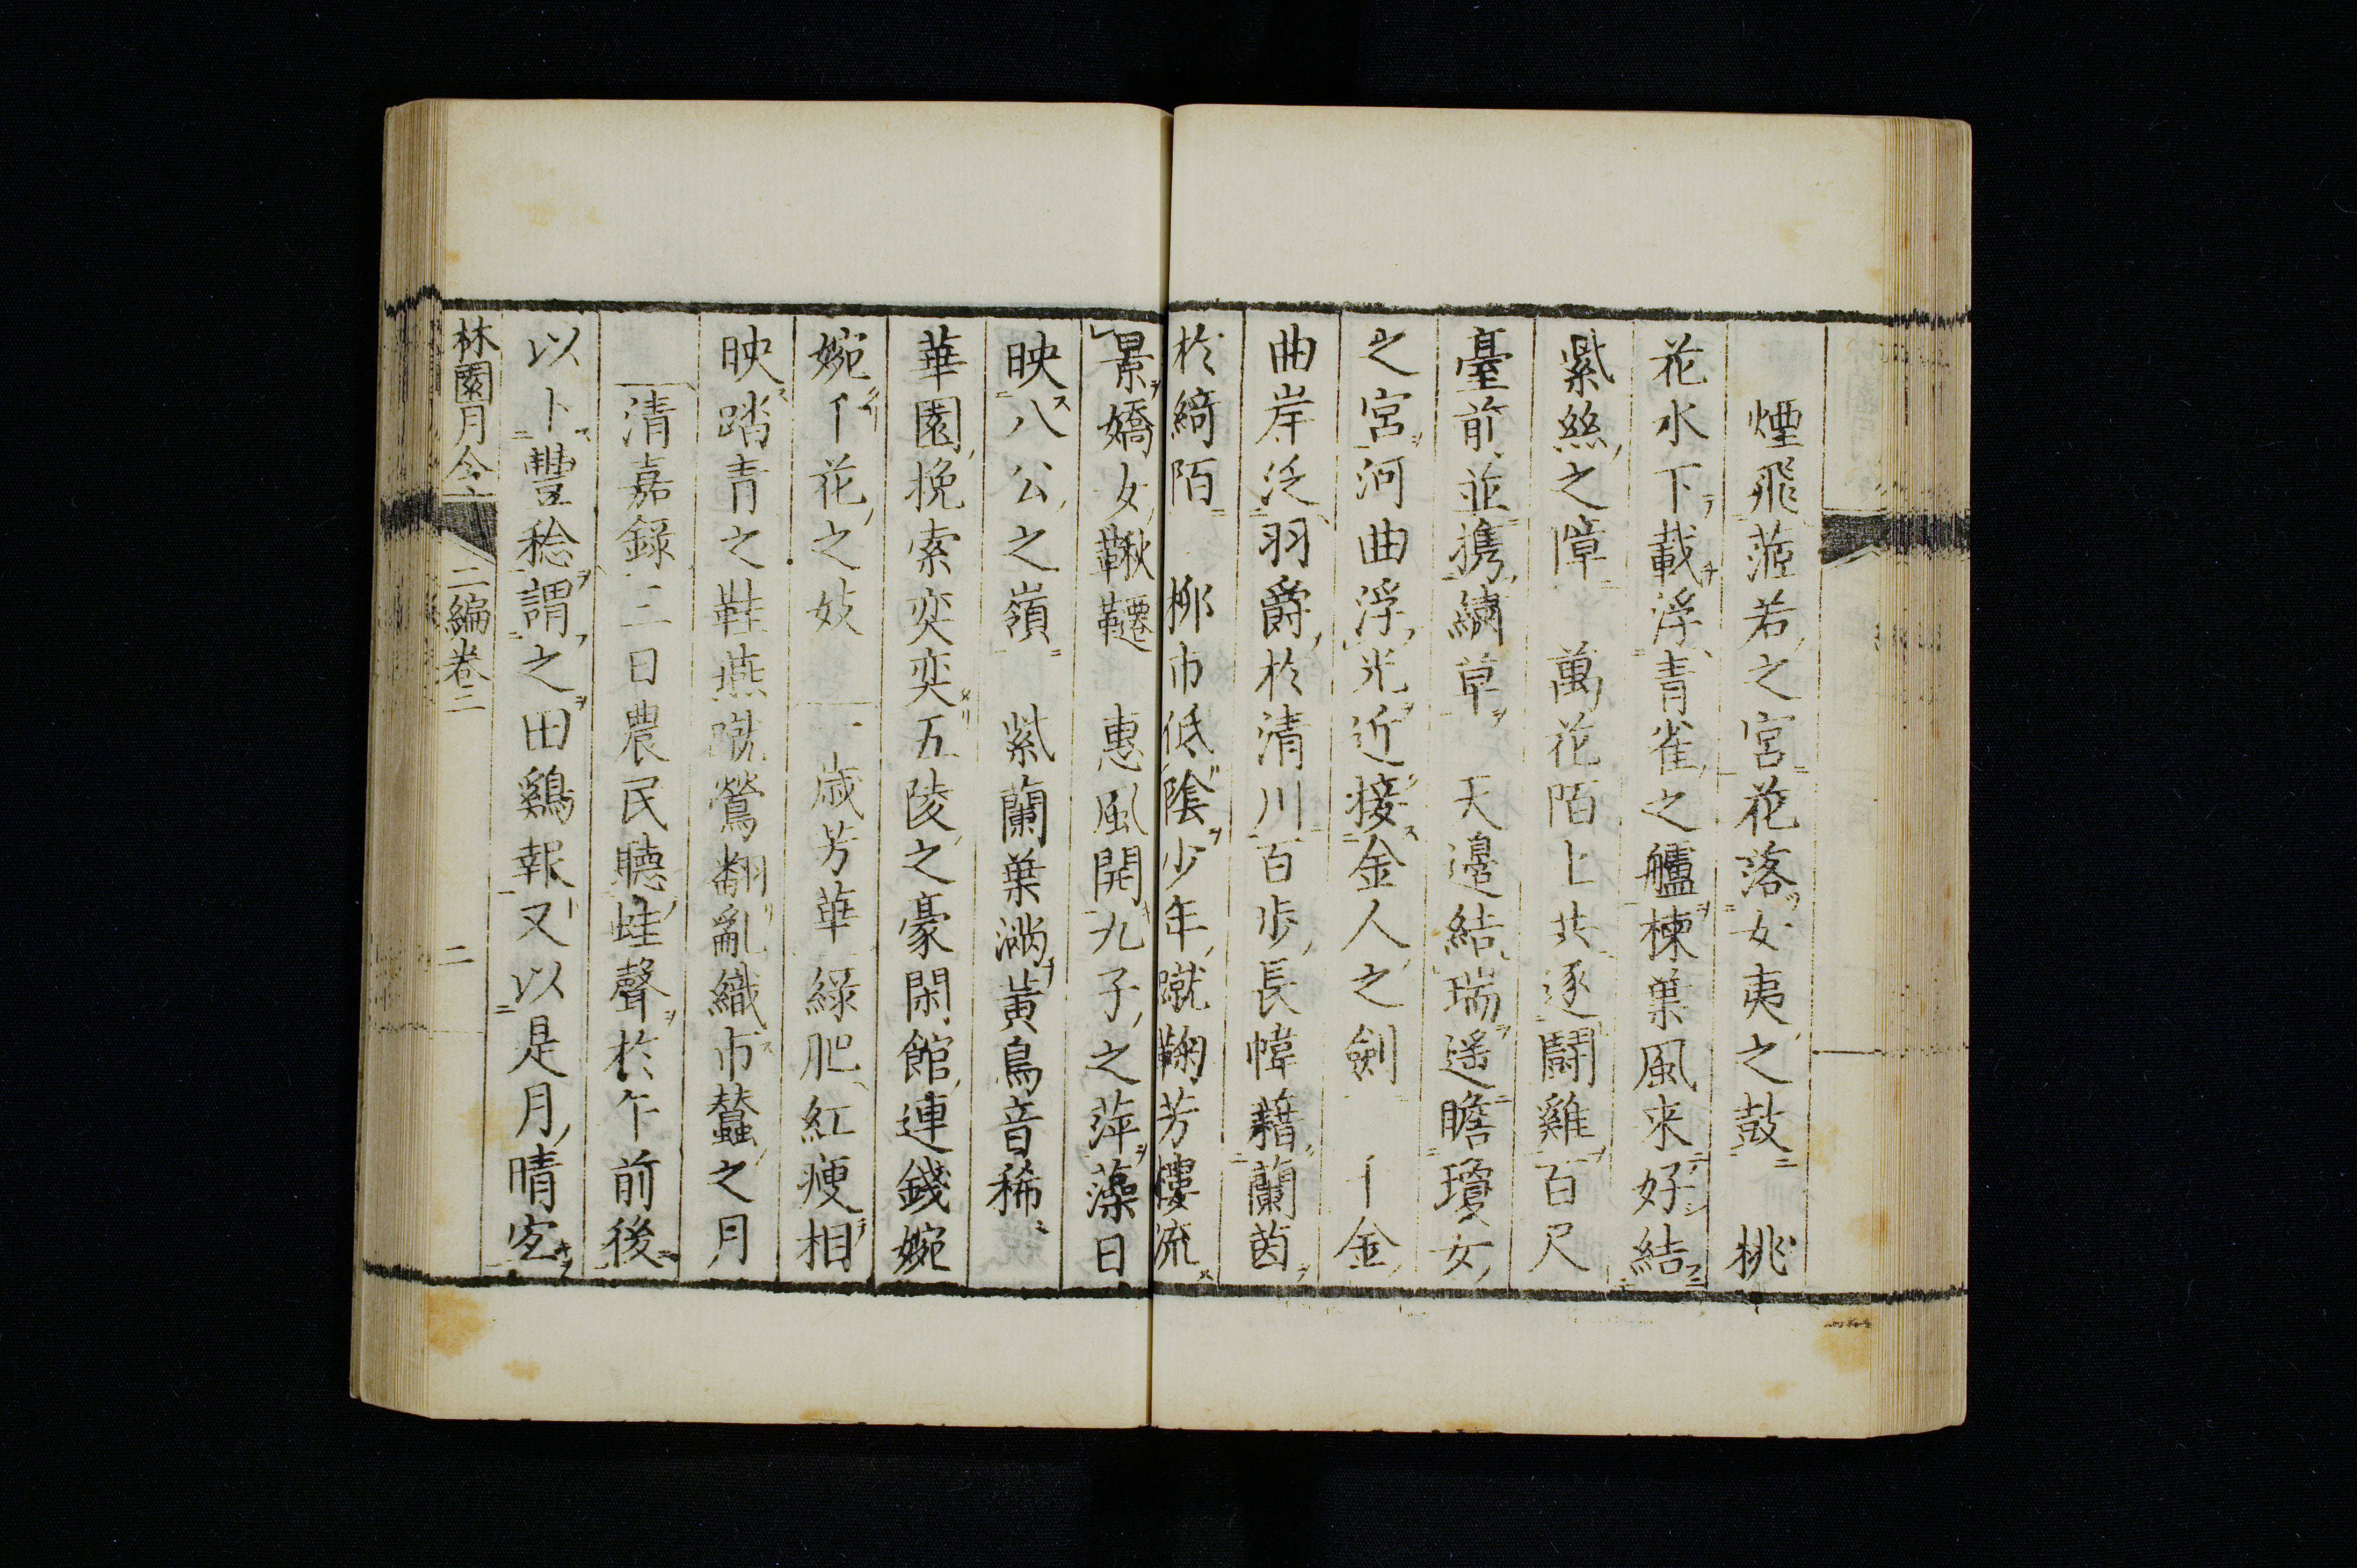 煙飛茫若之宮花落女夷之鼓 桃
花水下載浮青雀之艫棟葉風来好結
紫絲之障 萬花陌上共逐鬪雞百尺
臺前並携繡草 天邊結瑞遥瞻瓊女
之宮河曲浮光近接金人之劍 千金
曲岸泛羽爵於清川百歩長幃藉蘭茵
於綺陌 柳市低陰少年蹴鞠芳樓流
景嬌女鞦韆 惠風開九子之萍藻日
映八公之嶺 紫蘭葉満黄鳥音稀
華園挽索奕奕五陵之豪閑館連錢婉
婉千花之妓 一歳芳華緑肥紅瘦相
映踏青之鞋燕蹴鶯翻亂織市蠶之月
清嘉録三日農民聽蛙聲於午前後
以卜豐稔謂之田鷄報又以是月晴
林園月令
二編卷三
二